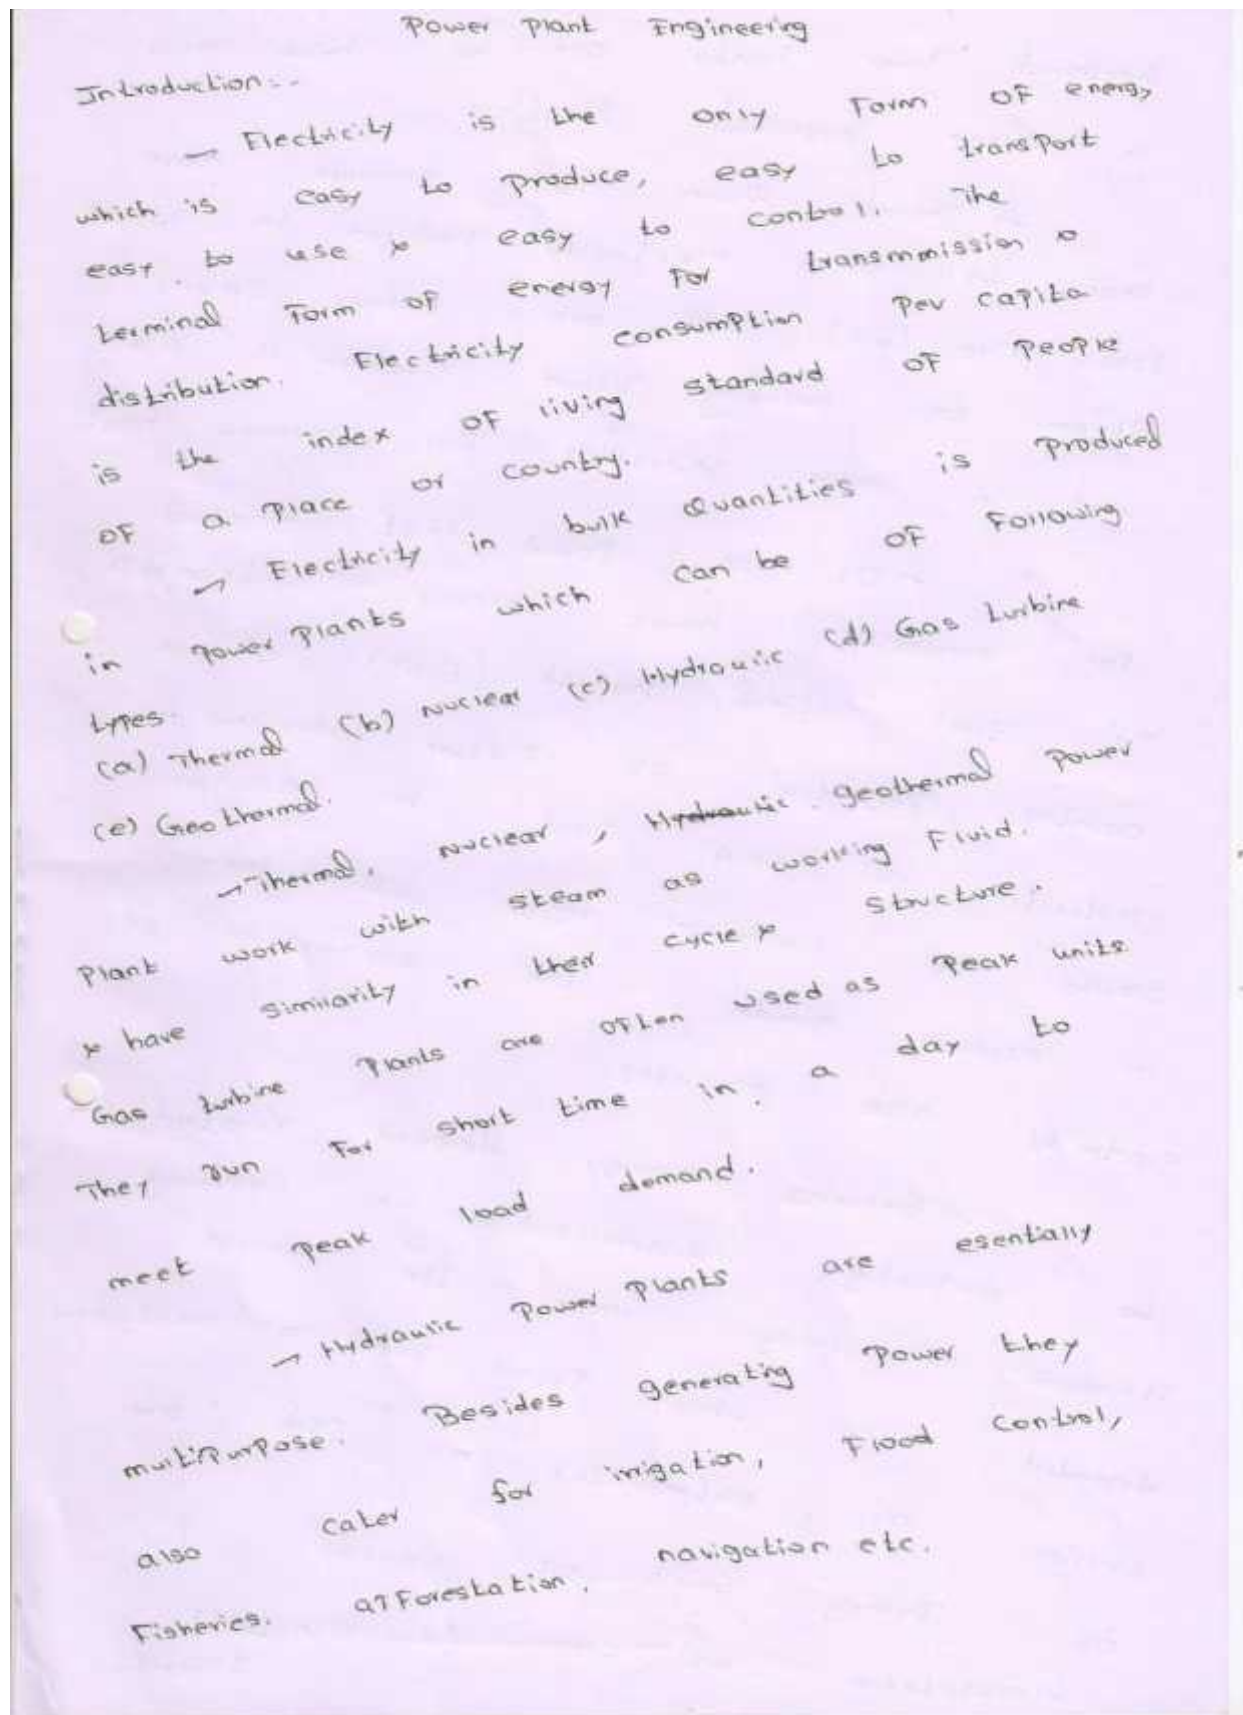 Power Plant Engineering
Introduction:-
→ Electricity is the only Form OF energy
which is easy to produce, easy to transport
easy to use & easy to control. The
terminal Form OF energy For transmmission &
distribution. Electricity consumption Per capita
is the index OF living standard OF People
OF a place or country.
→ Electricity in bulk Quantities is produced
in Power Plants which can be OF Following
types.
(a) Thermal (b) Nuclear (c) Hydraulic (d) Gas turbine
(e) Geothermal.
→ Thermal, Nuclear, Hydraulic geothermal Power
Plant work with steam as working Fluid.
& have similarity in their cycle & structure.
Gas turbine Plants are often used as Peak units
They run For short time in a day to
meet Peak load demand.
→ Hydraulic Power Plants are esentially
multiPurPose. Besides generating Power they
also cater for irrigation, Flood control,
Fisheries, afForestation, navigation etc.